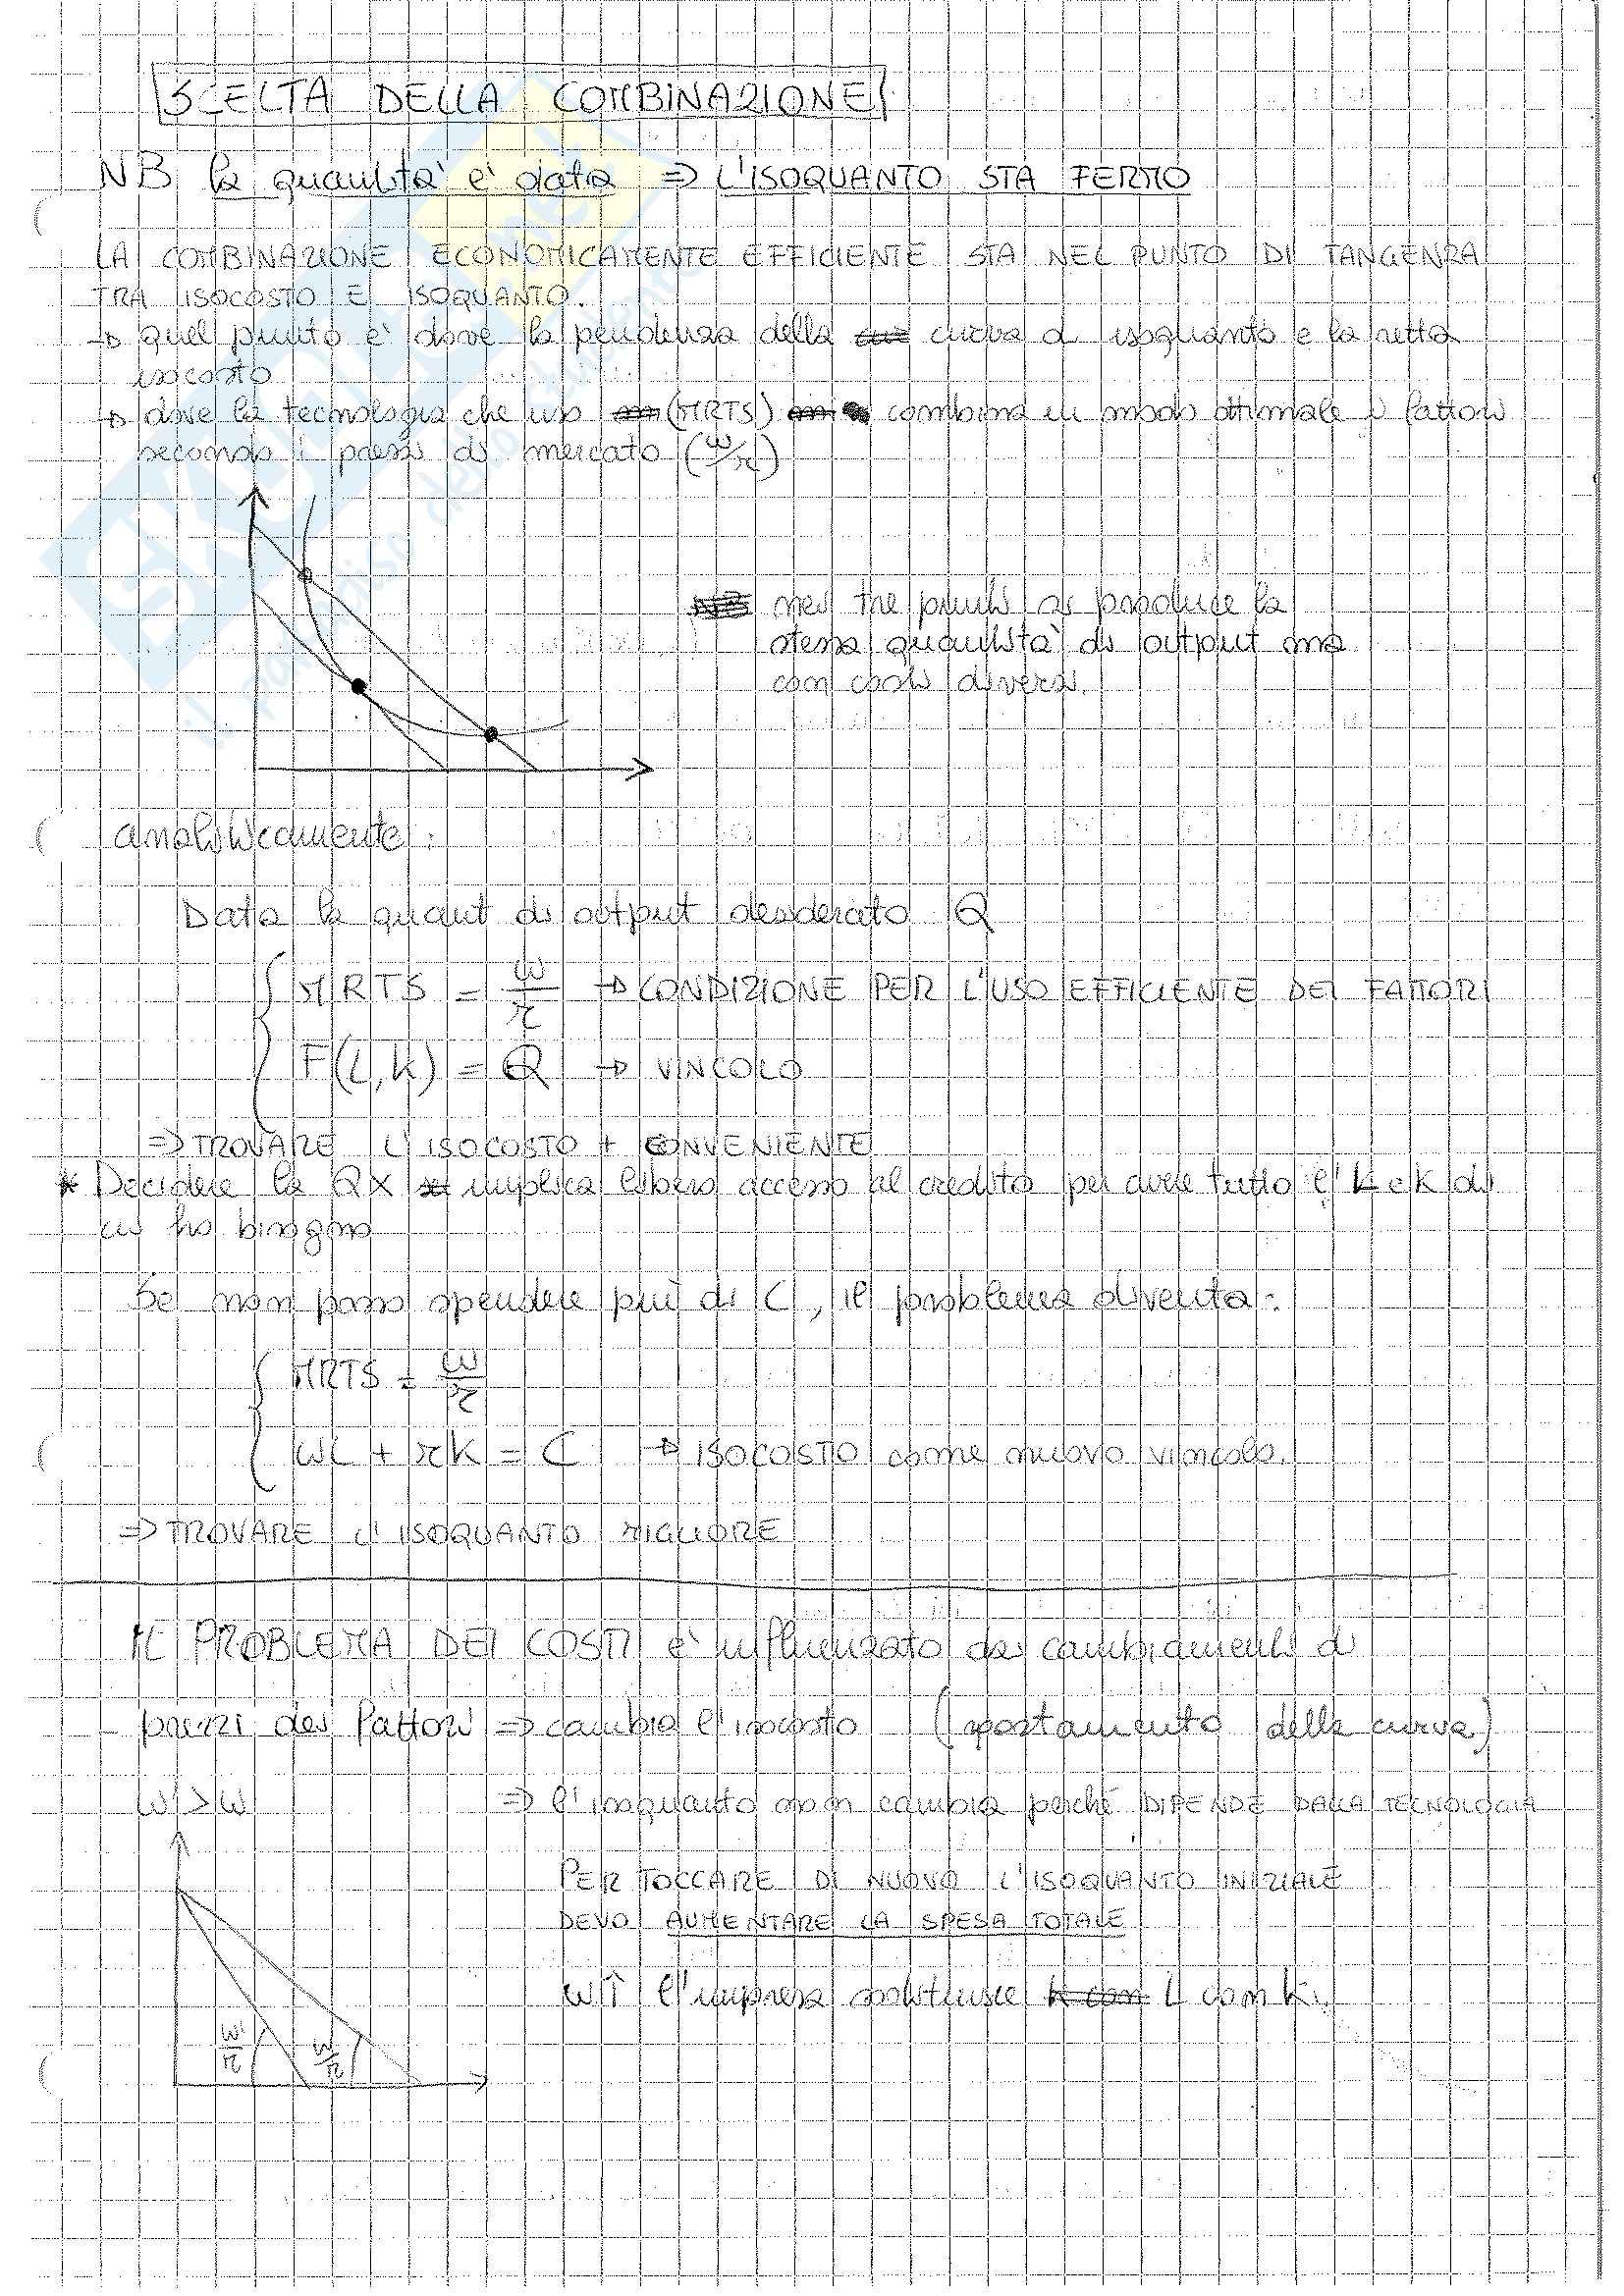 SCELTA DELLA COMBINAZIONE
NB la quantità è data ⇒ L'ISOQUANTO STA FERMO
LA COMBINAZIONE ECONOMICAMENTE EFFICIENTE STA NEL PUNTO DI TANGENZA
TRA ISOCOSTO E ISOQUANTO.
→ quel punto è dove la pendenza della curva d isoquanto e la retta
isocosto
→ dove la tecnologia che uso (MRTS) combina in modo ottimale i fattori
secondo i prezzi di mercato (w/r)
nei tre punti si produce la
stessa quantità di output ma
con costi diversi.
analiticamente:
Data la quant di output desiderato Q
MRTS = w/r → CONDIZIONE PER L'USO EFFICIENTE DEI FATTORI
F(L,K) = Q → VINCOLO
⇒ TROVARE L'ISOCOSTO + CONVENIENTE
* Decidere la QX implica libero accesso al credito per avere tutto l'L e K di
cui ho bisogno
Se non posso spendere più di C, il problema diventa:
MRTS = w/r
wL + rK = C → ISOCOSTO come nuovo vincolo.
⇒ TROVARE L'ISOQUANTO MIGLIORE
IL PROBLEMA DEI COSTI è influenzato da cambiamenti di
- prezzi dei fattori ⇒ cambia l'isocosto (spostamento della curva)
w'>w ⇒ l'isoquanto non cambia perché DIPENDE DALLA TECNOLOGIA
PER TOCCARE DI NUOVO L'ISOQUANTO INIZIALE
DEVO AUMENTARE LA SPESA TOTALE
w↑ l'impresa sostituisce L con K.
w'/r w/r